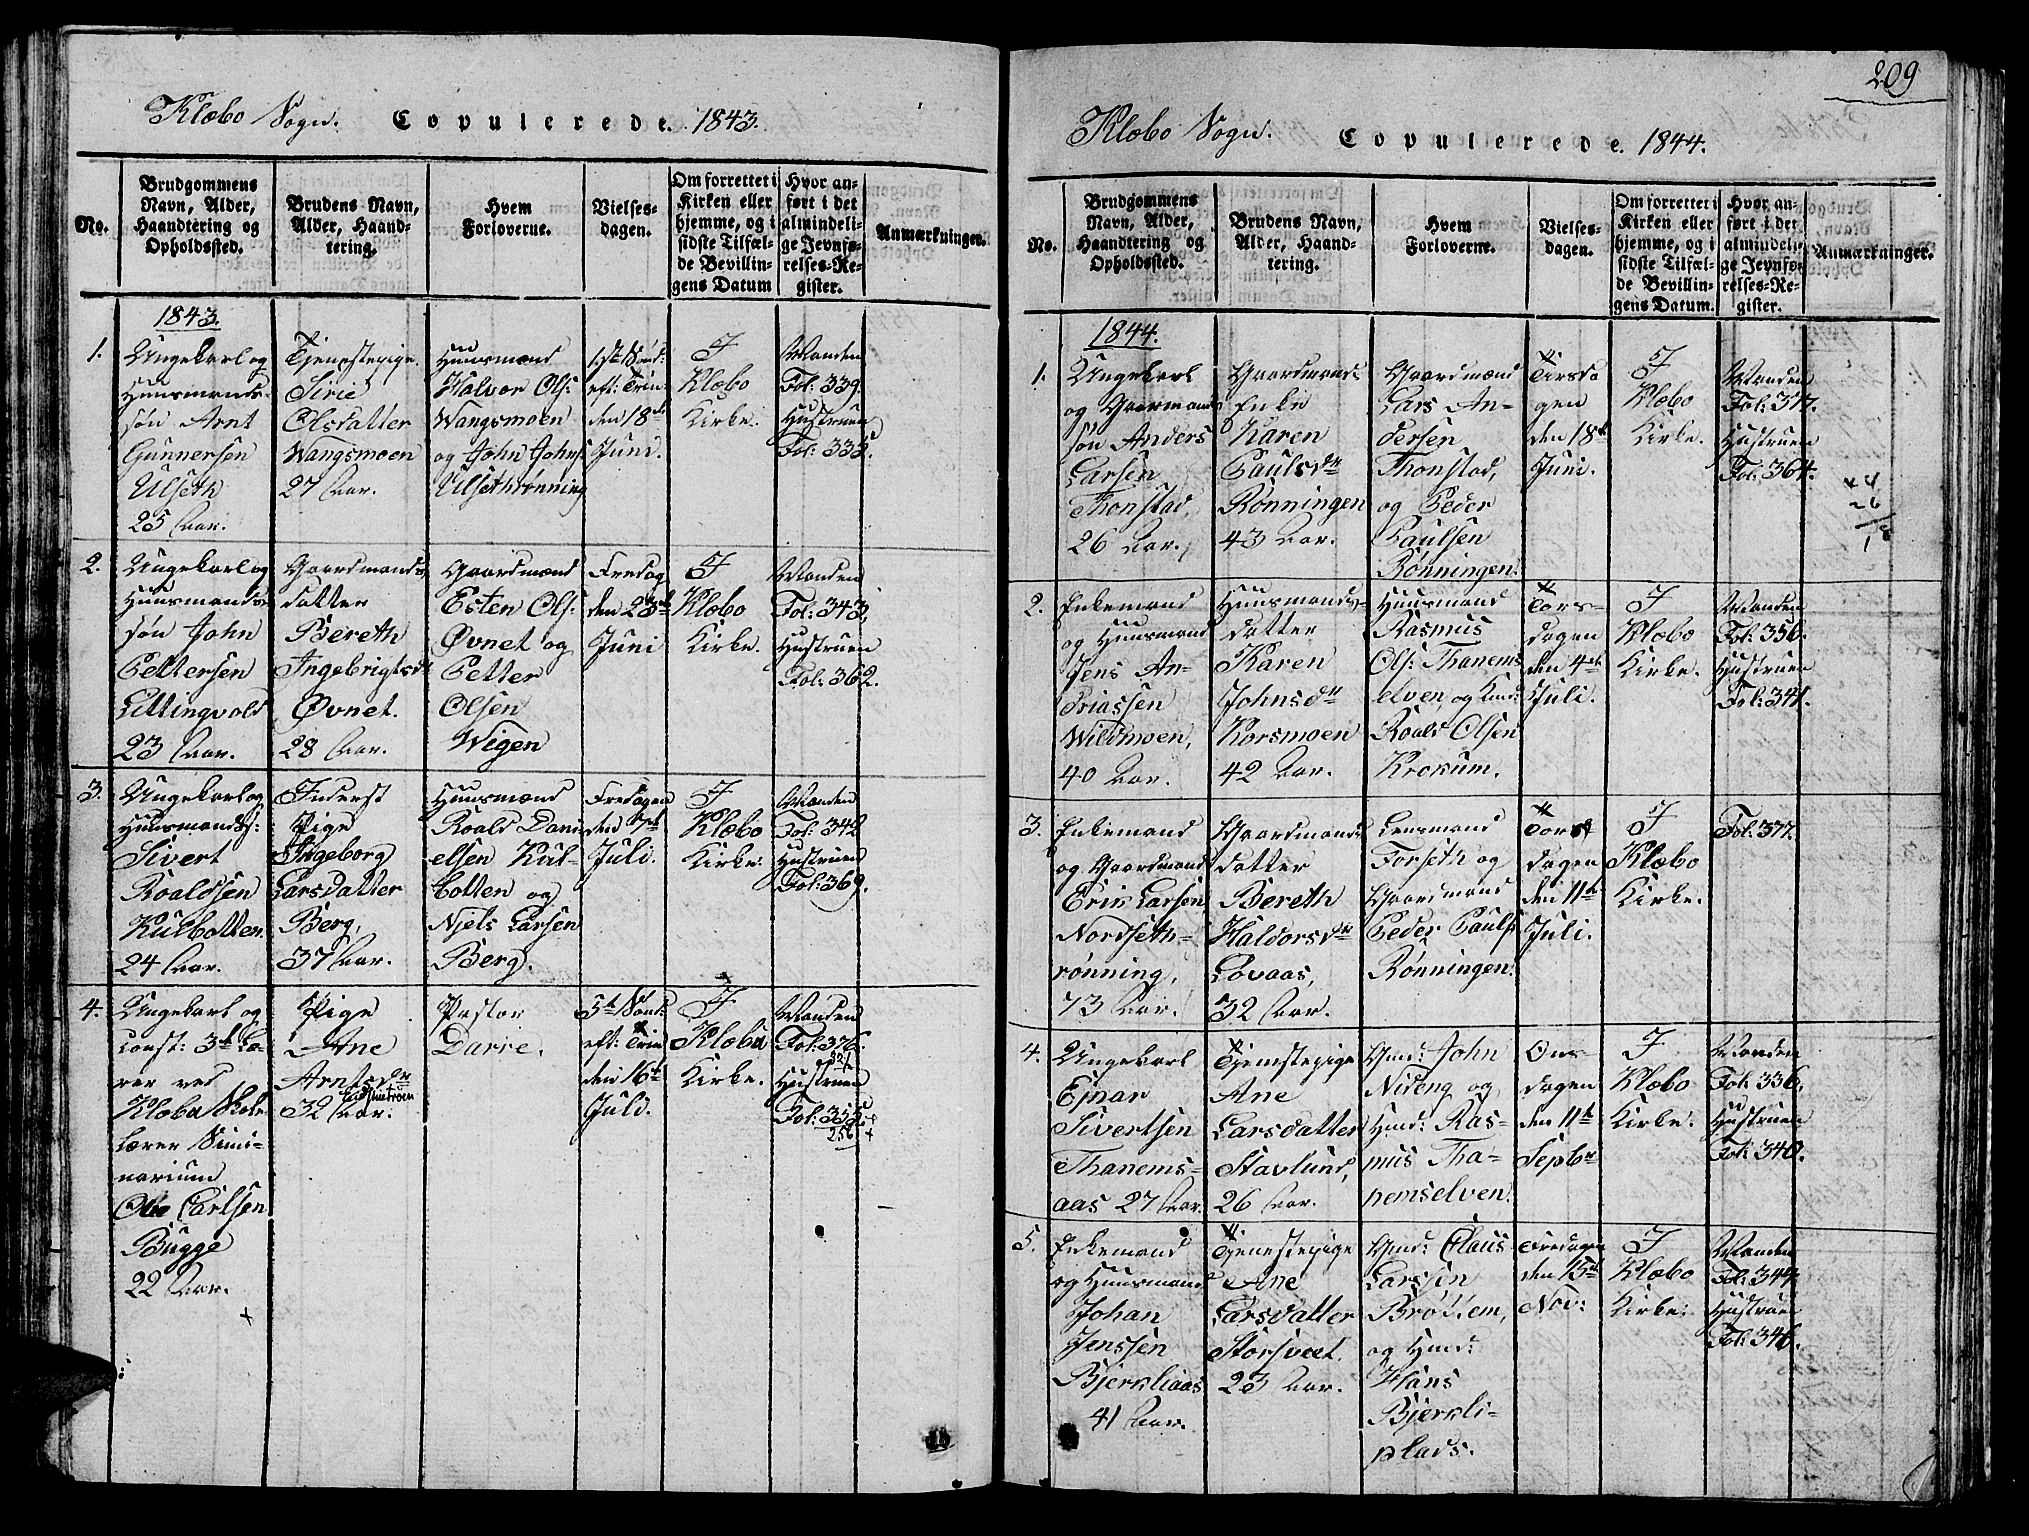 Klæbo Sogn. Copulerede. 1843.
No.
Brudgommens
Navn, Alder,
Haandtering og
Opholdssted.
Brudens Navn,
Alder, Haand-
tering.
Hvem
Forloverne.
Vielses-
dagen.
Om forrettet i
Kirken eller
hjemme, og i
sidste Tilfæl-
de Bevillin-
gens Datum
Hvor an-
ført i det
almindeli-
ge Jevnfø-
relses-Re-
gister.
Anmærkninger.
1843.
1.
Ungekarl og
Huusmands-
søn Arnt
Gunnersen
Ulseth
25 Aar.
Tjenestepige
Sirie
Olsdatter
Wangsmoen
27 Aar.
Huusmænd
Halvor Ols:
Wangsmoen
og John Johns:
Ulsethrønning
1ste Sønd:
eft: Trin:
den 18de
Juni.
I
Klæbo
Kirke.
Manden
Fol: 339.
Hustruen
Fol: 335.
2.
Ungekarl og
Huusmands-
søn John
Pettersen
Littingvold
23 Aar.
Gaardmands
datter
Bereth
Ingebrigtsdr
Øvnet.
28 Aar.
Gaardmænd
Esten Ols:
Øvnet og
Petter
Olsen
Wigen
Fredag
den 23de
Juni
I
Klæbo
Kirke.
Manden
Fol: 343,
Hustruen
Fol: 362.
3.
Ungekarl og
Huusmands:
Sivert
Roaldsen
Kulbotten.
24 Aar.
Inderst
Pige
Ingeborg
Larsdatter
Berg,
37 Aar.
Huusmænd
Roald Dani
elsen Kul-
botten og
Njels Larsen
Berg.
Fredagen
den 7de
Juli.
I
Klæbo
Kirke.
Manden
Fol: 342
Hustruen
Fol: 369.
4.
Ungekarl og
const: 3die Læ-
rer ved
Klæbu Skole
lærer Semi-
narium
Ole Carlsen
Bugge
22 Aar.
+
Pige
Ane
Arntsdr
32 Aar.
Pastor
Darre.
5te Sønd:
eft: Trin
den 16de
Juli.
I
Klæbu
Kirke.
Manden
Fol: 376.
221
Hustruen
Fol: 353
256 +
209
Klæbo Sogn. Copulerede. 1844.
No.
Brudgommens
Navn, Alder,
Haandtering og
Opholdssted.
Brudens Navn,
Alder, Haand-
tering.
Hvem
Forloverne.
Vielses-
dagen.
Om forrettet i
Kirken eller
hjemme, og i
sidste Tilfæl-
de Bevillin-
gens Datum.
Hvor an-
ført i det
almindeli-
ge Jevnfø-
relses-Re-
gister.
Anmærkninger.
1844.
1.
Ungekarl
og Gaarmands
søn Anders
Larsen
Thonstad,
26 Aar.
Gaardmands
Enke
Karen
Paulsdr
Rønningen
43 Aar.
Gaardmænd
Lars An-
dersen
Thonstad,
og Peder
Paulsen
Rønningen.
Tirsda
gen
den 18de
Juni.
I
Klæbo
Kirke.
Manden
Fol: 377.
Hustruen
Fol: 364.
44
26
18
2.
Enkemand
og Huusmand
Jens An-
driassen
Wildmoen,
40 Aar.
Huusmands-
datter
Karen
Johnsdr
Korsmoen
42 Aar.
Huusmænd
Rasmus
Ols: Thanems
elven og
Roald Olsen
Krokum.
Tors-
dagen
den 4de
Juli.
I
Klæbo
Kirke.
Manden
Fol: 356.
Hustruen
Fol: 341.
3.
Enkemand
og Gaardmand
Erik Larsen
Nordseth-
rønning,
73 Aar.
Gaardmands
datter
Bereth
Haldorsdr
Lovaas,
32 Aar.
Lensmand
Forseth og
Gaardmand
Peder Pauls:
Rønningen.
Tors
dagen
den 11te
Juli.
I
Klæbo
Kirke.
Fol: 377.
4.
Ungekarl
Ejnar
Sivertsen
Thanems-
aas 27 Aar.
Tjenestepige
Ane
Larsdatter
Stavlund,
26 Aar.
Gmd: John
Nideng og
Hmd: Ras-
mus Tha-
nemselven.
Ons-
dagen
den 11te
Septbr
I
Klæbo
Kirke.
Manden
Fol: 336,
Hustruen
Fol: 340.
5.
Enkemand
og Huusmand
Johan
Jenssen
Bjerkliaas
41 Aar.
Tjenestepige
Ane
Larsdatter
Storsvet.
23 Aar.
Gmd: Claus
Larssen
Brøttem,
og Hmd:
Hans
Bjerkli-
plads.
Fredagen
den 15de
Nov:
I
Klæbo
Kirke:
Manden
Fol: 344.
Hustruen
Fol: 346.